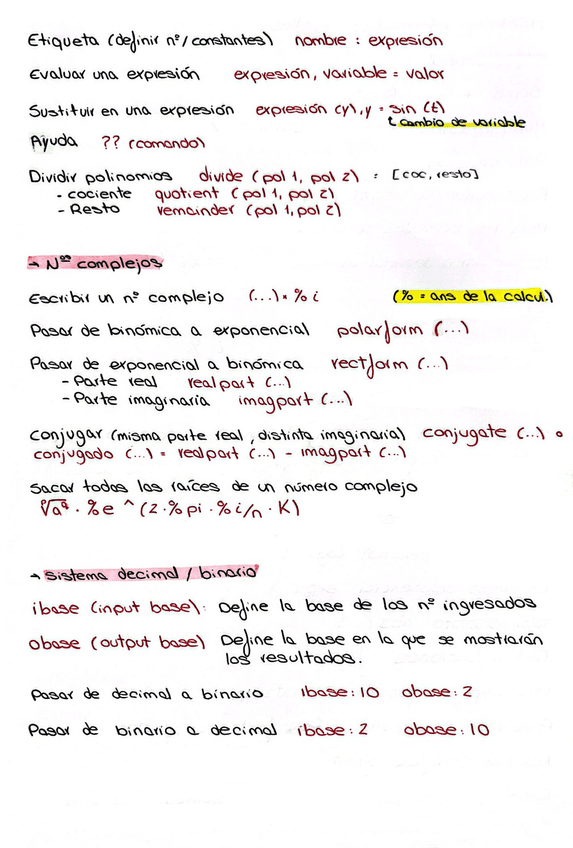 Etiqueta (definir nº/constantes) nombre : expresión
Evaluar una expresión expresión, variable = valor
Sustituir en una expresión expresión (y), y = sin (t)
cambio de variable
Ayuda ?? (comando)
Dividir polinomios divide (pol 1, pol 2) = [coc, resto]
- cociente quotient (pol 1, pol 2)
- Resto remainder (pol 1, pol 2)
→ Nºs complejos
Escribir un nº complejo (...) * % i (% = ans de la calcul.)
Pasar de binómica a exponencial polarform (...)
Pasar de exponencial a binómica rectform (...)
- Parte real realpart (...)
- Parte imaginaria imagpart (...)
conjugar (misma parte real, distinta imaginaria) conjugate (...) o
conjugado (...) = realpart (...) - imagpart (...)
Sacar todas las raíces de un número complejo
· %e ^ (2·%pi·%i/n · K)
→ Sistema decimal / binario
ibase (input base): Define la base de los nº ingresados
obase (output base) Define la base en la que se mostrarán
los resultados.
Pasar de decimal a binario ibase: 10 obase: 2
Pasar de binario a decimal ibase: 2 obase: 10